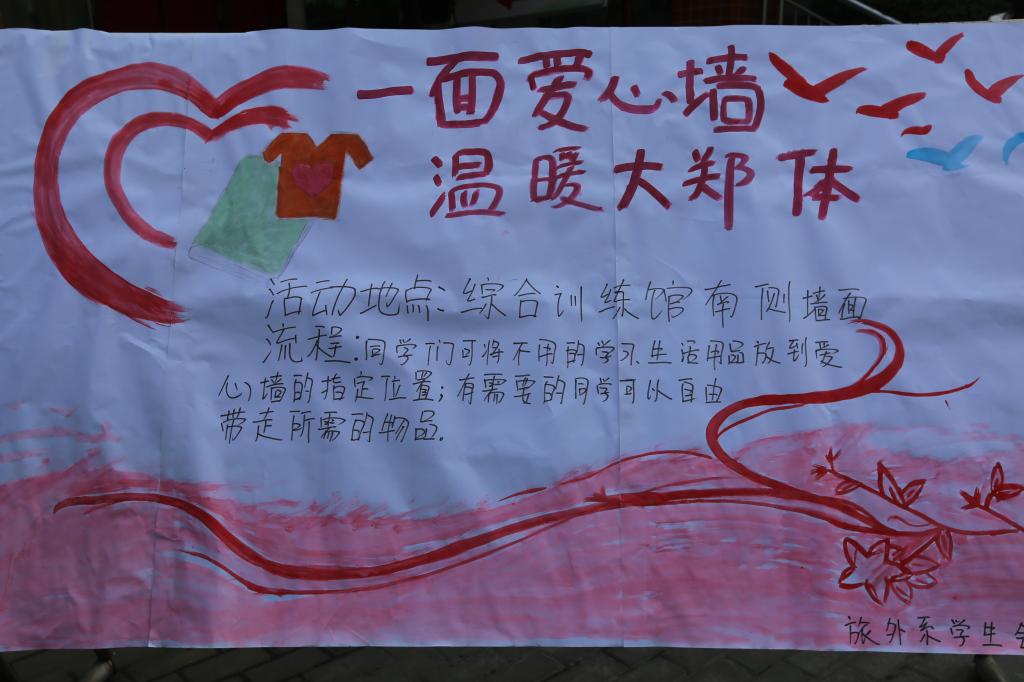 一面爱心墙
温暖大郑体
活动地点:综合训练馆南侧墙面
流程:同学们可将不用的学习生活用品放到爱
心墙的指定位置;有需要的同学可以自由
带走所需的物品.
旅外系学生会